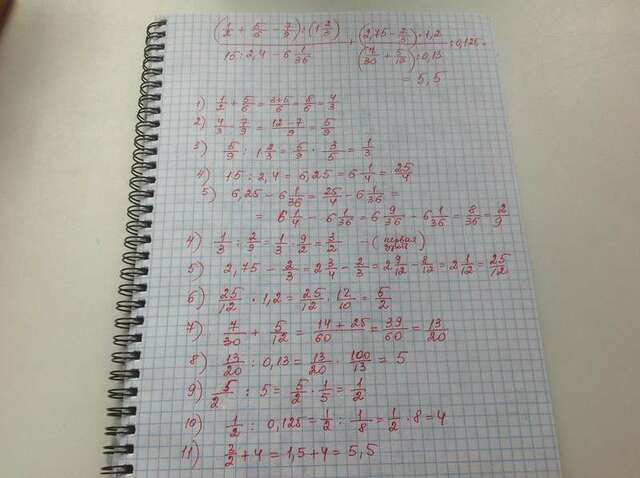 (1/2 + 5/6 - 7/9) : (1 2/3) / 15 : 2,4 - 6 1/36 + (2,75 - 2/3) · 1,2 / (7/30 + 5/12) : 0,13 : 0,125 =
= 5,5
1) 1/2 + 5/6 = 3+5/6 = 8/6 = 4/3
2) 4/3 - 7/9 = 12-7/9 = 5/9
3) 5/9 : 1 2/3 = 5/9 · 3/5 = 1/3
4) 15 : 2,4 = 6,25 = 6 1/4 = 25/4
5) 6,25 - 6 1/36 = 25/4 - 6 1/36 =
= 6 1/4 - 6 1/36 = 6 9/36 - 6 1/36 = 8/36 = 2/9
4) 1/3 : 2/9 = 1/3 · 9/2 = 3/2 - (первая
5) 2,75 - 2/3 = 2 3/4 - 2/3 = 2 9/12 - 8/12 = 2 1/12 = 25/12
6) 25/12 · 1,2 = 25/12 · 12/10 = 5/2
7) 7/30 + 5/12 = 14+25/60 = 39/60 = 13/20
8) 13/20 : 0,13 = 13/20 · 100/13 = 5
9) 5/2 : 5 = 5/2 · 1/5 = 1/2
10) 1/2 : 0,125 = 1/2 : 1/8 = 1/2 · 8 = 4
11) 3/2 + 4 = 1,5 + 4 = 5,5